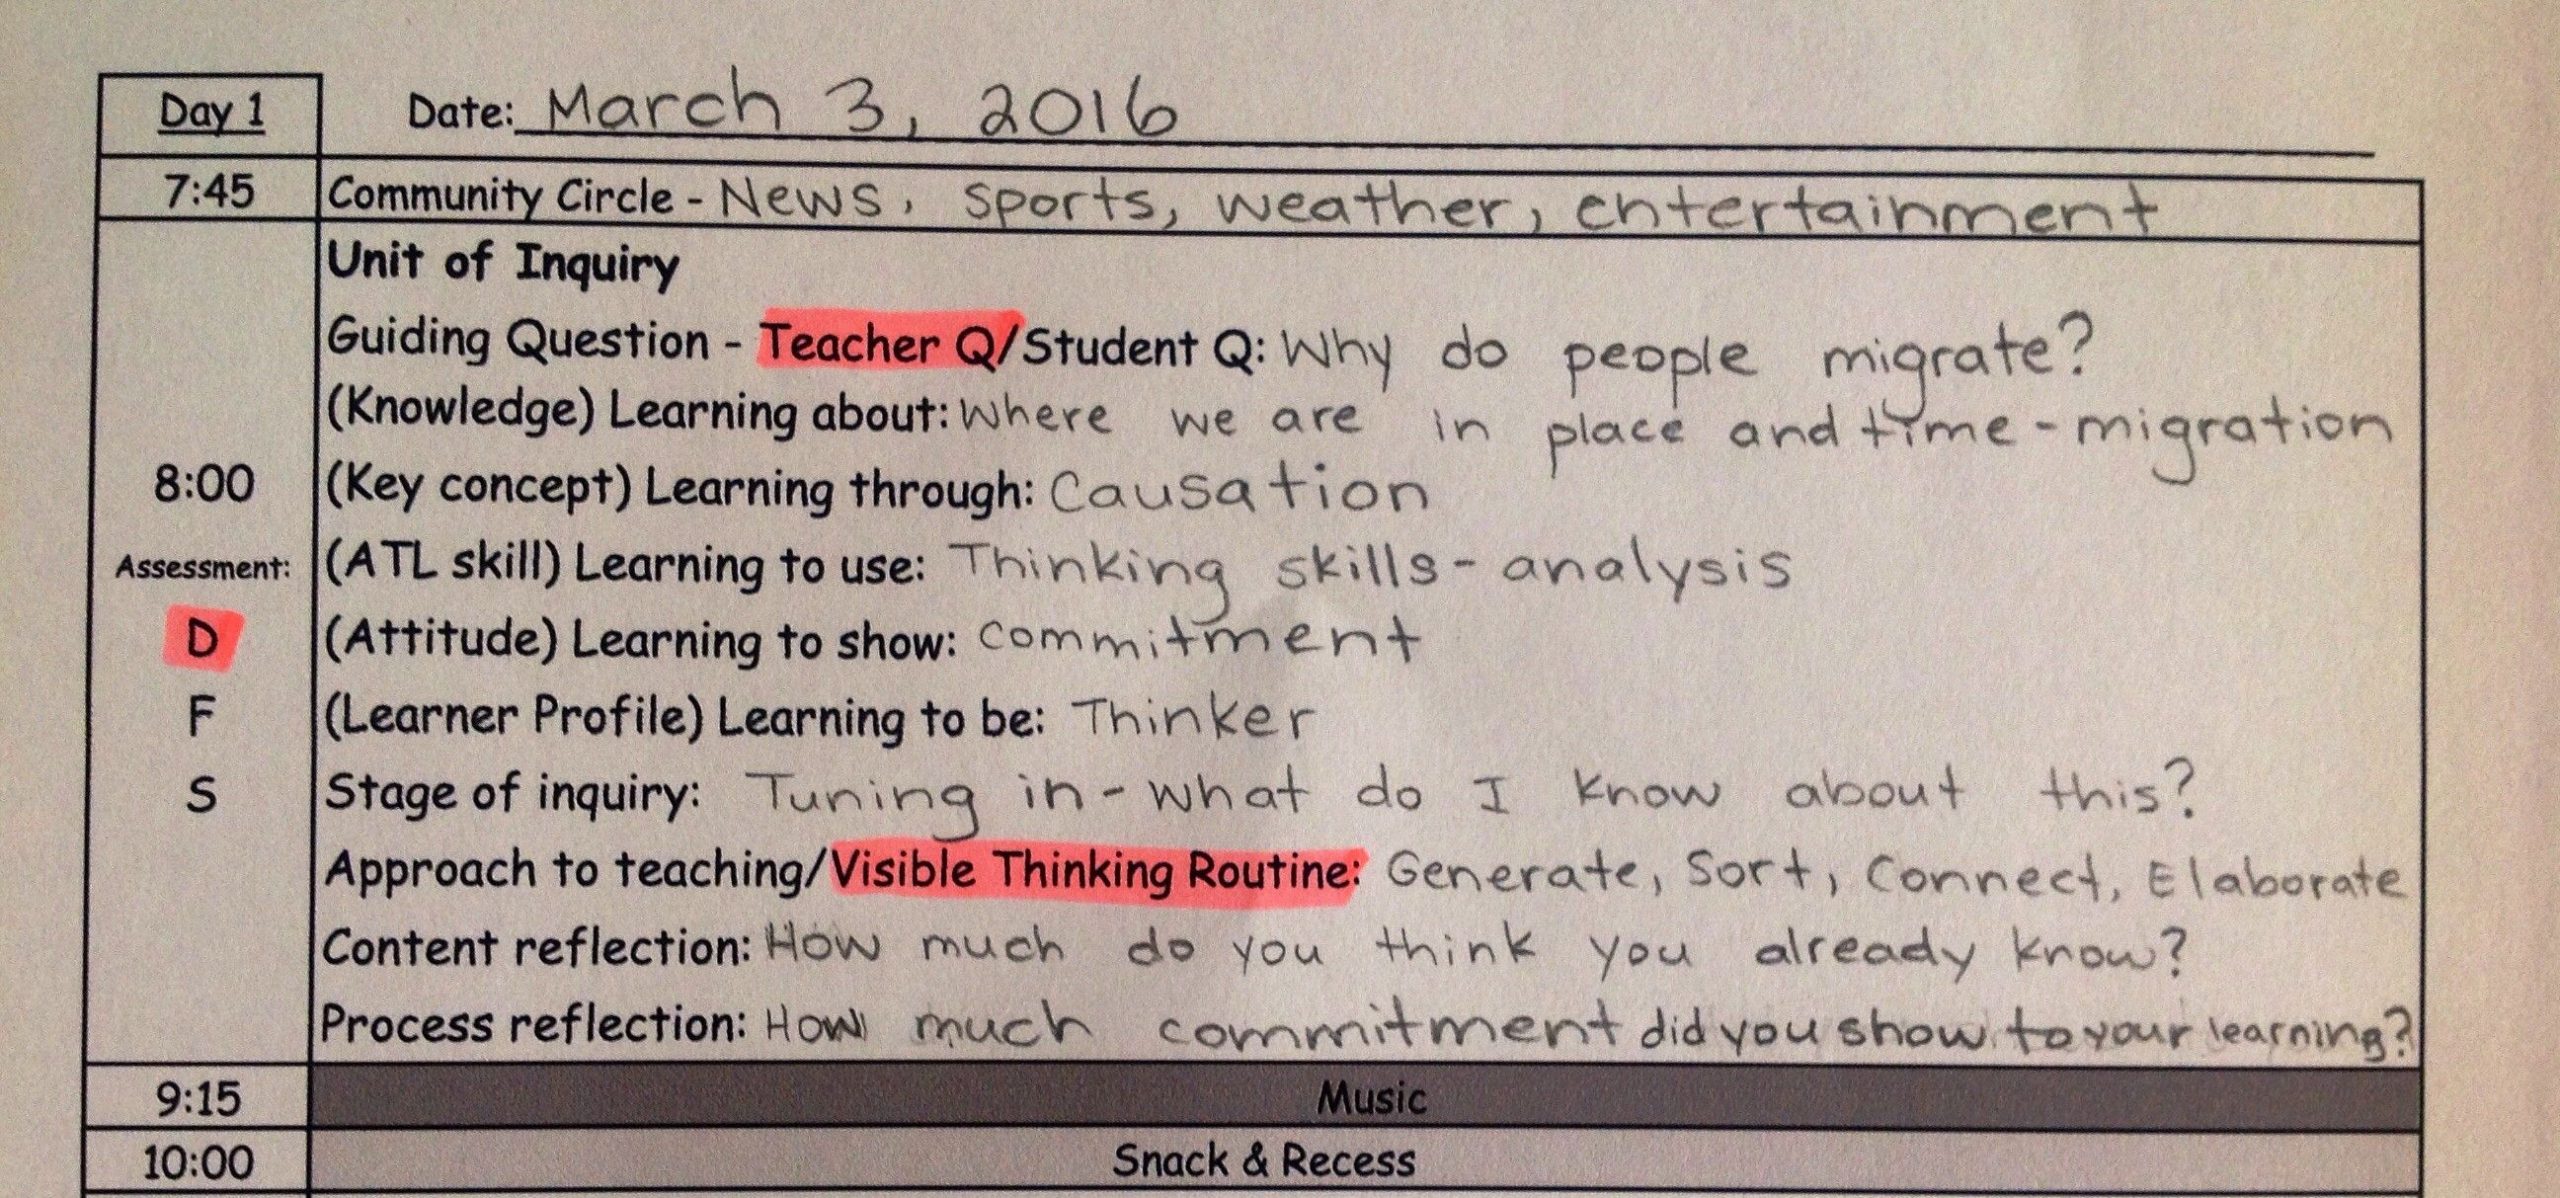 Day 1 Date: March 3, 2016
7:45 Community Circle - News, Sports, weather, entertainment
Unit of Inquiry
Guiding Question - Teacher Q/Student Q: Why do people migrate?
(Knowledge) Learning about: Where we are in place and time - migration
8:00 (Key concept) Learning through: Causation
Assessment: (ATL skill) Learning to use: Thinking skills - analysis
D (Attitude) Learning to show: Commitment
F (Learner Profile) Learning to be: Thinker
S Stage of inquiry: Tuning in - what do I know about this?
Approach to teaching/Visible Thinking Routine: Generate, Sort, Connect, Elaborate
Content reflection: How much do you think you already know?
Process reflection: How much commitment did you show to your learning?
9:15 Music
10:00 Snack & Recess